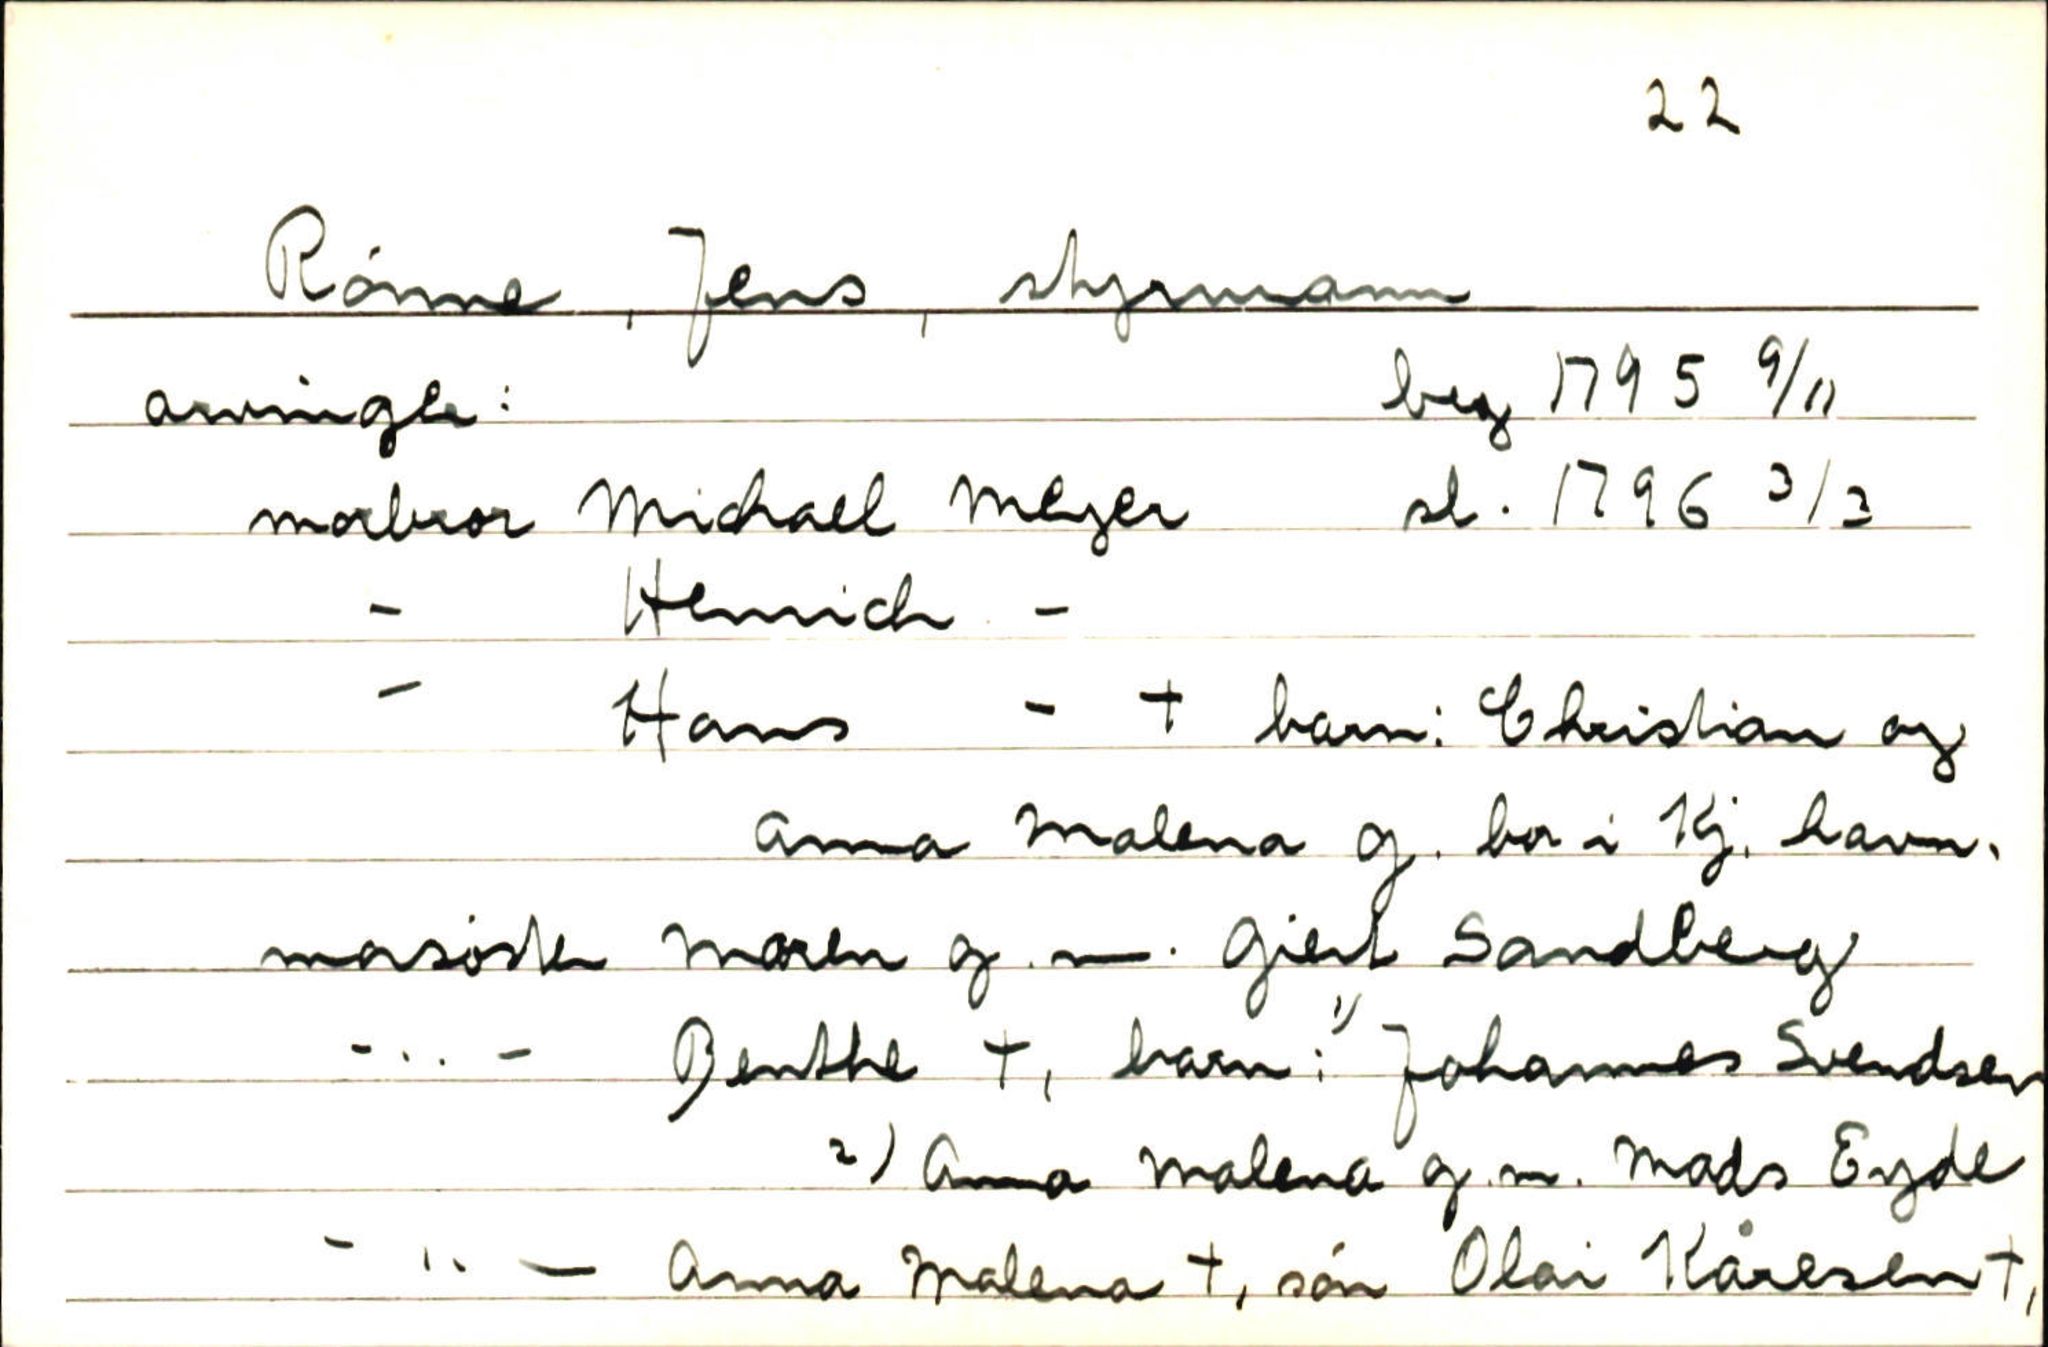 22
Rónne, Jens, styrmann
arvinger: beg 1795 9/11
morbror Michael Meyer sl. 1796 3/3
- Henrich -
- Hans - † barn: Christian og
Anna Malena g. bor i Kj. havn.
morsöster Maren g. m. Giert Sandberg
- .. - Benthe †, barn: 1) Johannes Svendsen
2) Anna Malena g. m. Mads Eyde
- .. - Anna Malena †, són Olai Kåresen †,